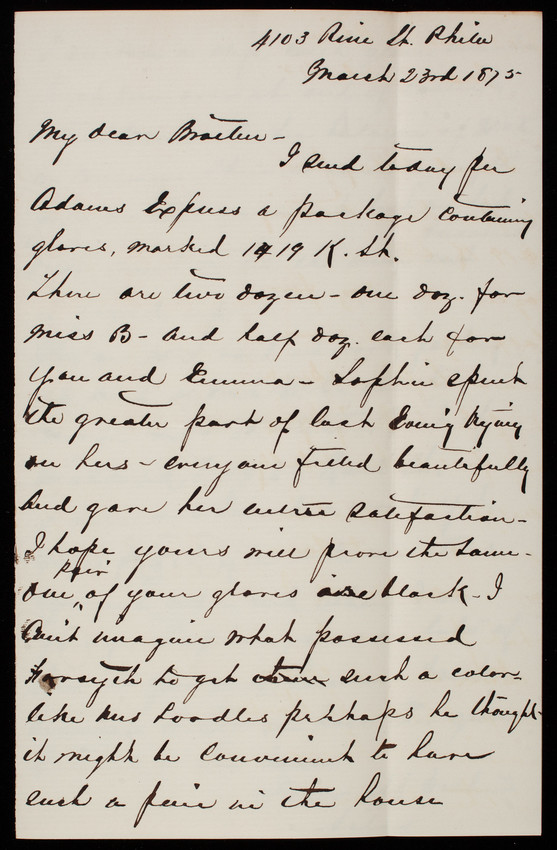 4103 Pine St. Phila
March 23rd 1875
My dear Brother -
I send today per
Adams Express a package containing
gloves, marked 1419 K. St.
There are two dozen - one doz. for
Miss B - and half doz. each for
you and Emma - Sophie spent
the greater part of last Evening trying
on hers - everyone fitted beautifully
and gave her entire satisfaction -
I hope yours will prove the same -
pair
One of your gloves are black - I
can't imagine what possessed
Forsyth to get such a color -
like Mrs Toodles perhaps he thought
it might be convenient to have
such a pair in the house